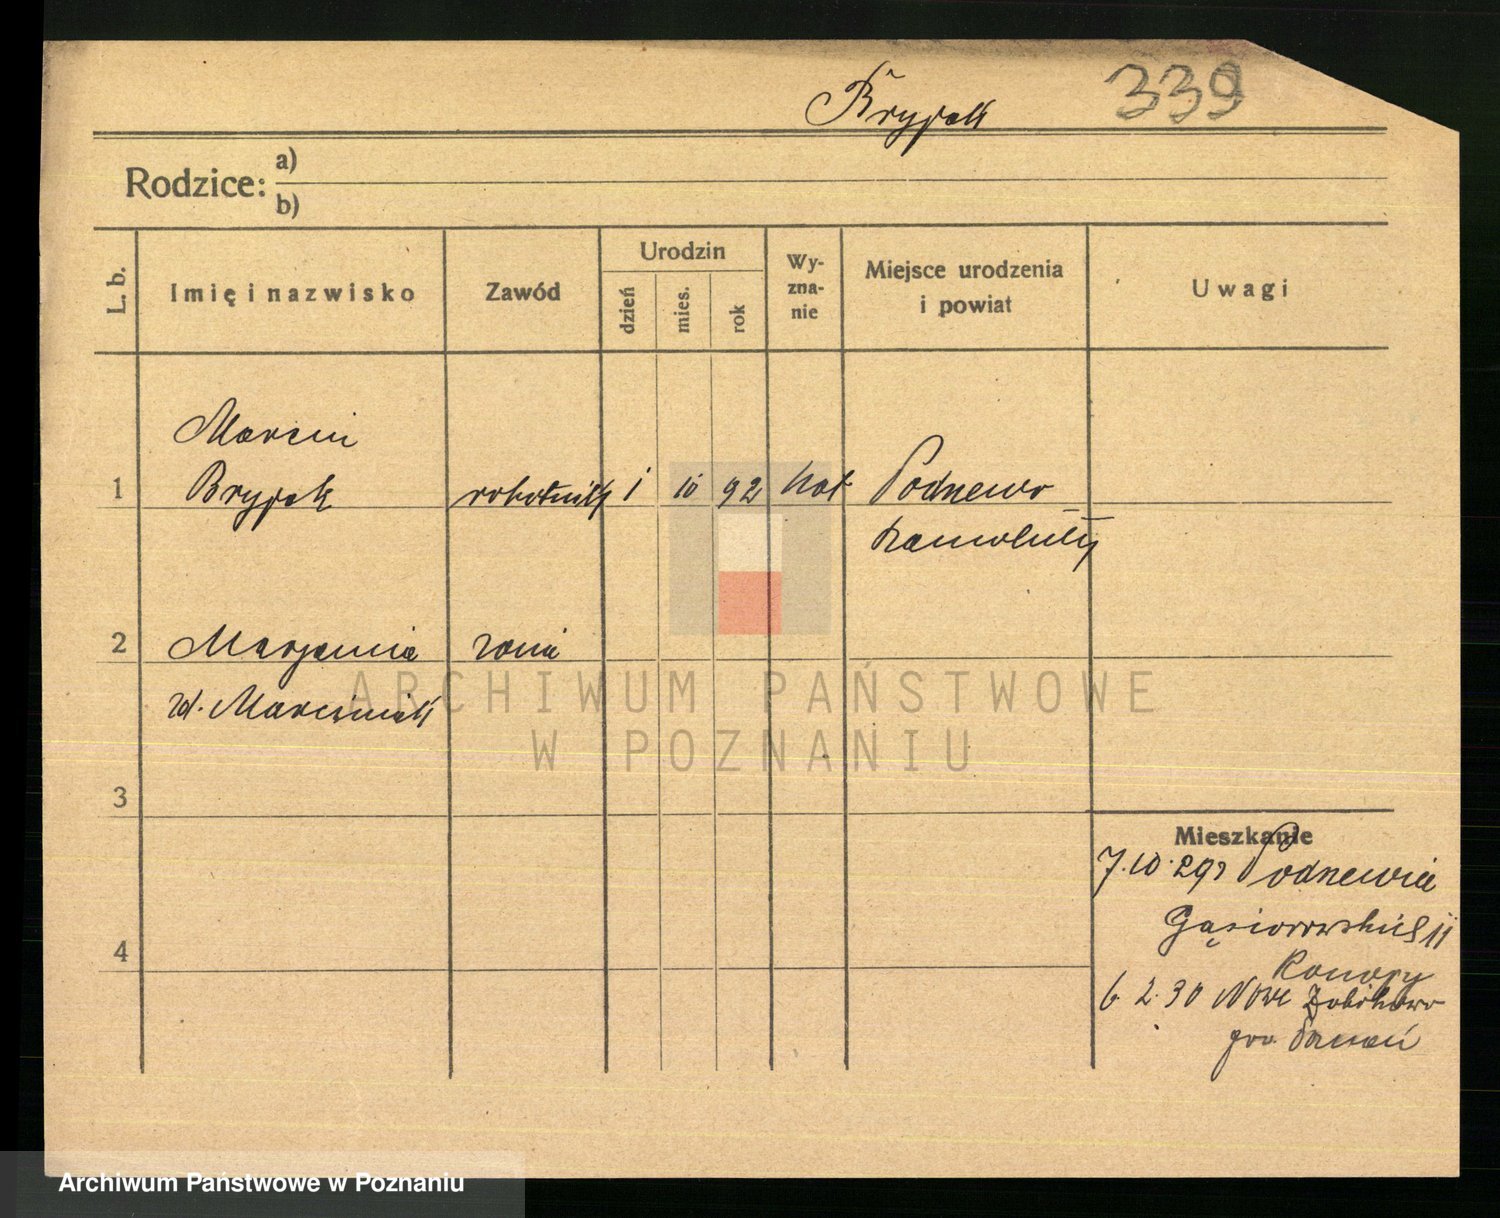 Bryjak 339
Rodzice: a)
b)
L. b. Imię i nazwisko Zawód Urodzin dzień mies. rok Wy-
zna-
nie Miejsce urodzenia
i powiat Uwagi
Marcin
1 Bryjak robotnik 1 10 92 kat Podrzewo
2 Marjanna żona
zd. Marciniak
3
Mieszkanie
7.10.29 Podrzewia
Gąsiorowskich 11
4
Konopy
6 2. 30 Nowe Żabikowo
pow. Poznań
ARCHIWUM PAŃSTWOWE
W POZNANIU
Archiwum Państwowe w Poznaniu